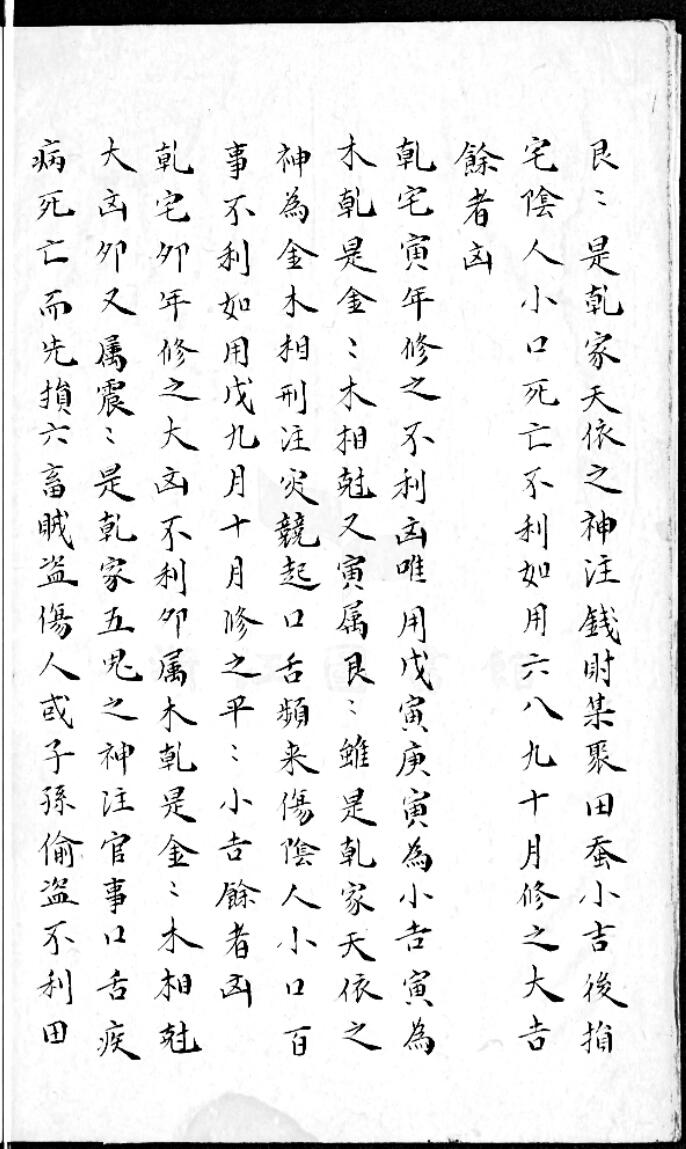 艮〻是乾家天依之神注錢財集聚田蚕小吉後損
宅陰人小口死亡不利如用六八九十月修之大吉
餘者凶
乾宅寅年修之不利凶唯用戊寅庚寅為小吉寅為
木乾是金〻木相尅又寅属艮〻雖是乾家天依之
神為金木相刑注災競起口舌頻来傷陰人小口百
事不利如用戊九月十月修之平〻小吉餘者凶
乾宅卯年修之大凶不利卯属木乾是金〻木相尅
大凶卯又属震〻是乾家五鬼之神注官事口舌疾
病死亡而先損六畜賊盗傷人或子孫偷盗不利田